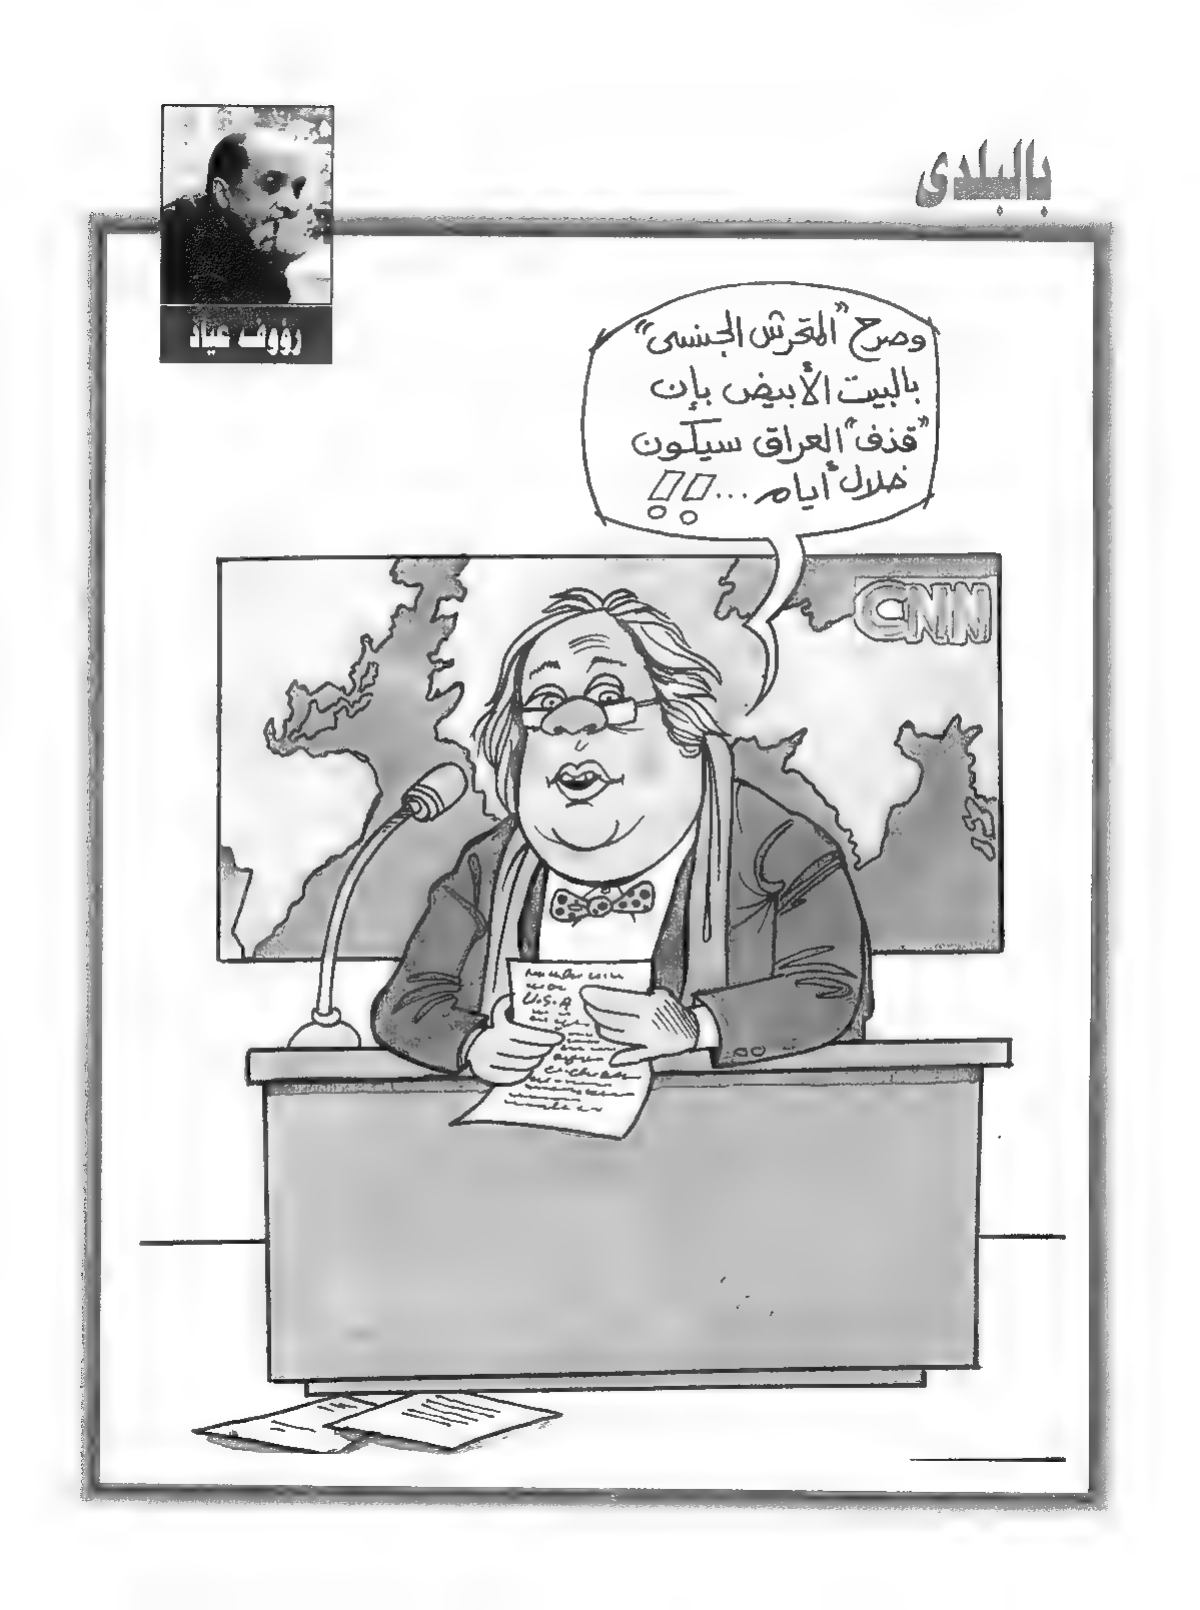 بالبلدى
رؤوف عياد
وصرح "المتحرش الجنسى"
بالبيت الأبيض بإن
"قذف" العراق سيكون
خلال أيام ...!!
CNN
U.S.A